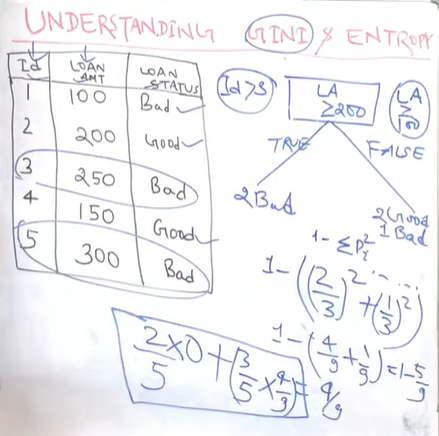 UNDERSTANDING GINI & ENTROPY
Id LOAN AMT LOAN STATUS
1 100 Bad
2 200 Good
3 250 Bad
4 150 Good
5 300 Bad
Id>3
LA ≥200
LA ≥ 100
TRUE FALSE
2 Bad
2 Good
1 Bad
1 - ΣPi²
1 - ((2/3)² + (1/3)²)
1 - (4/9 + 1/9) = 1 - 5/9
2/5 × 0 + (3/5 × 4/9) = 4/9